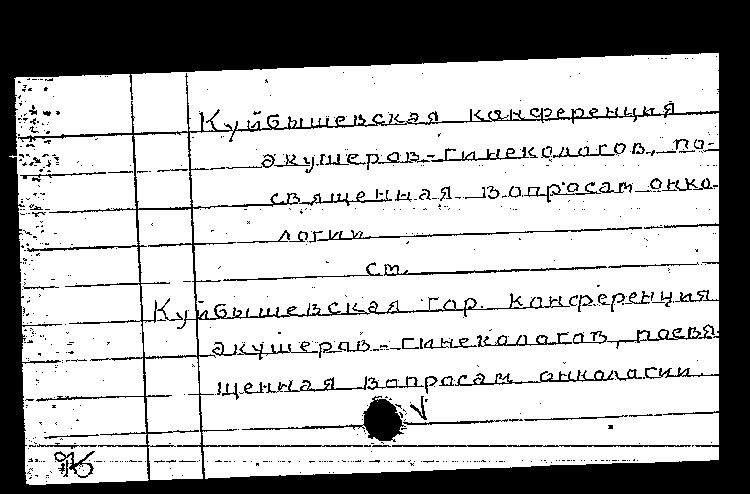 Куйбышевская конференция
акушеров-гинекологов, по-
священная вопросам онко-
логии
см.
Куйбышевская гор. конференция
акушеров-гинекологов, посвя-
щенная вопросам онкологии.